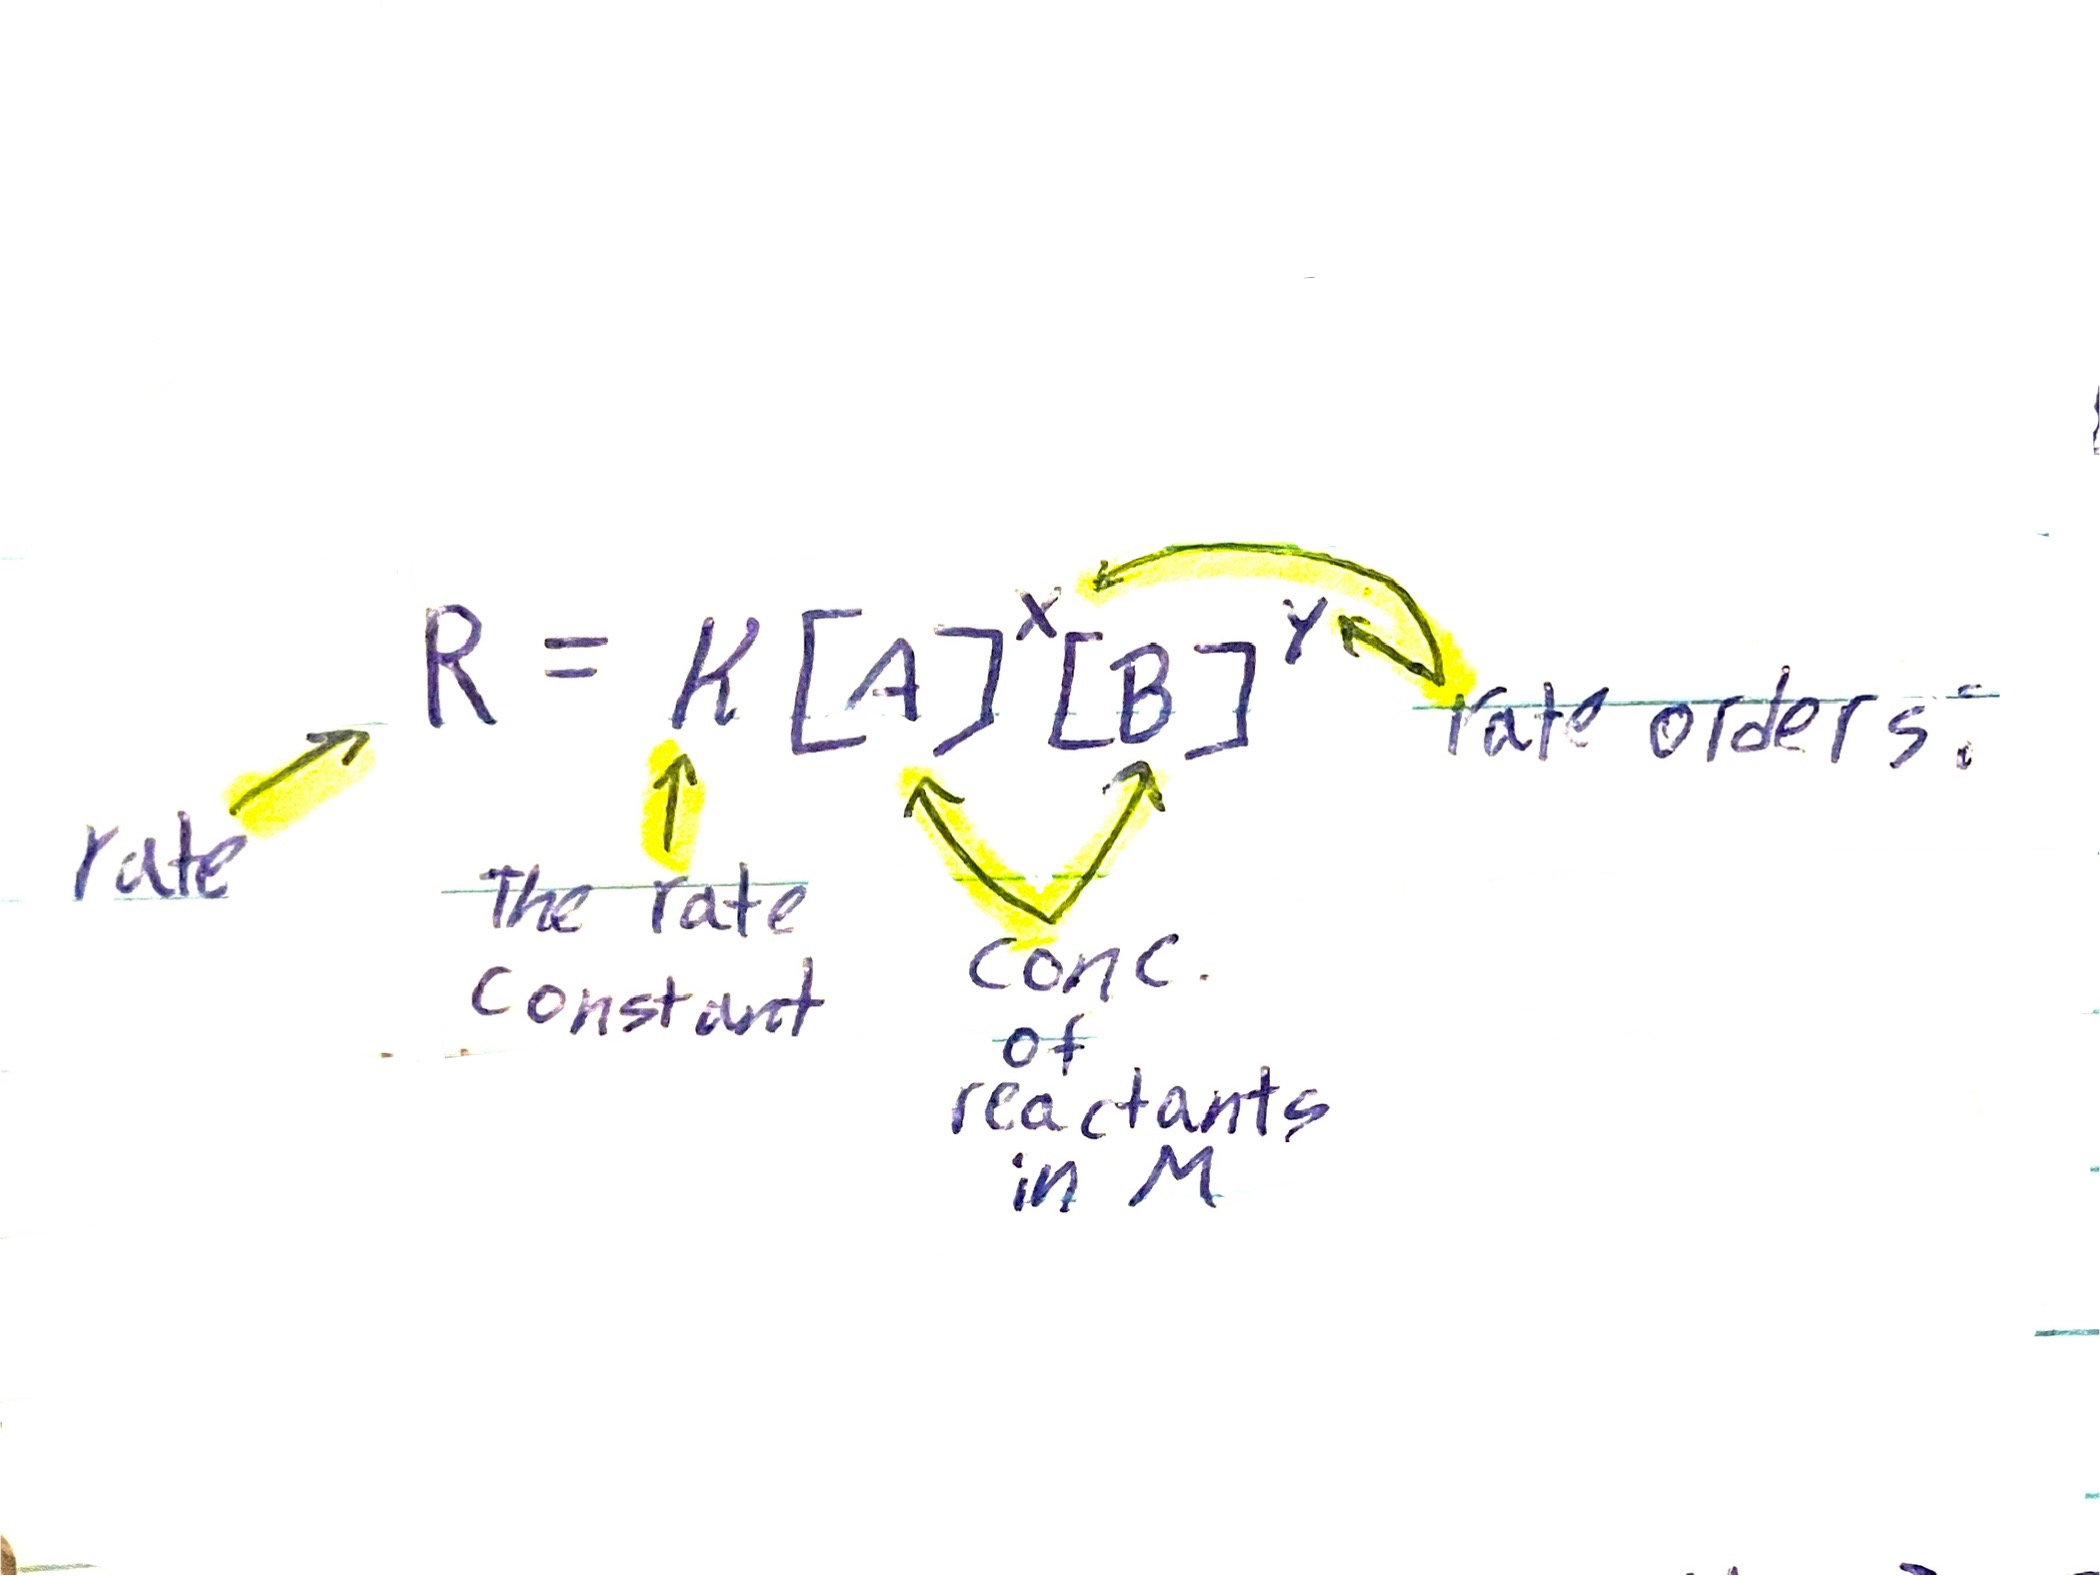 R = K[A]^x[B]^y
rate orders:
rate
The rate
constant
conc.
of
reactants
in M